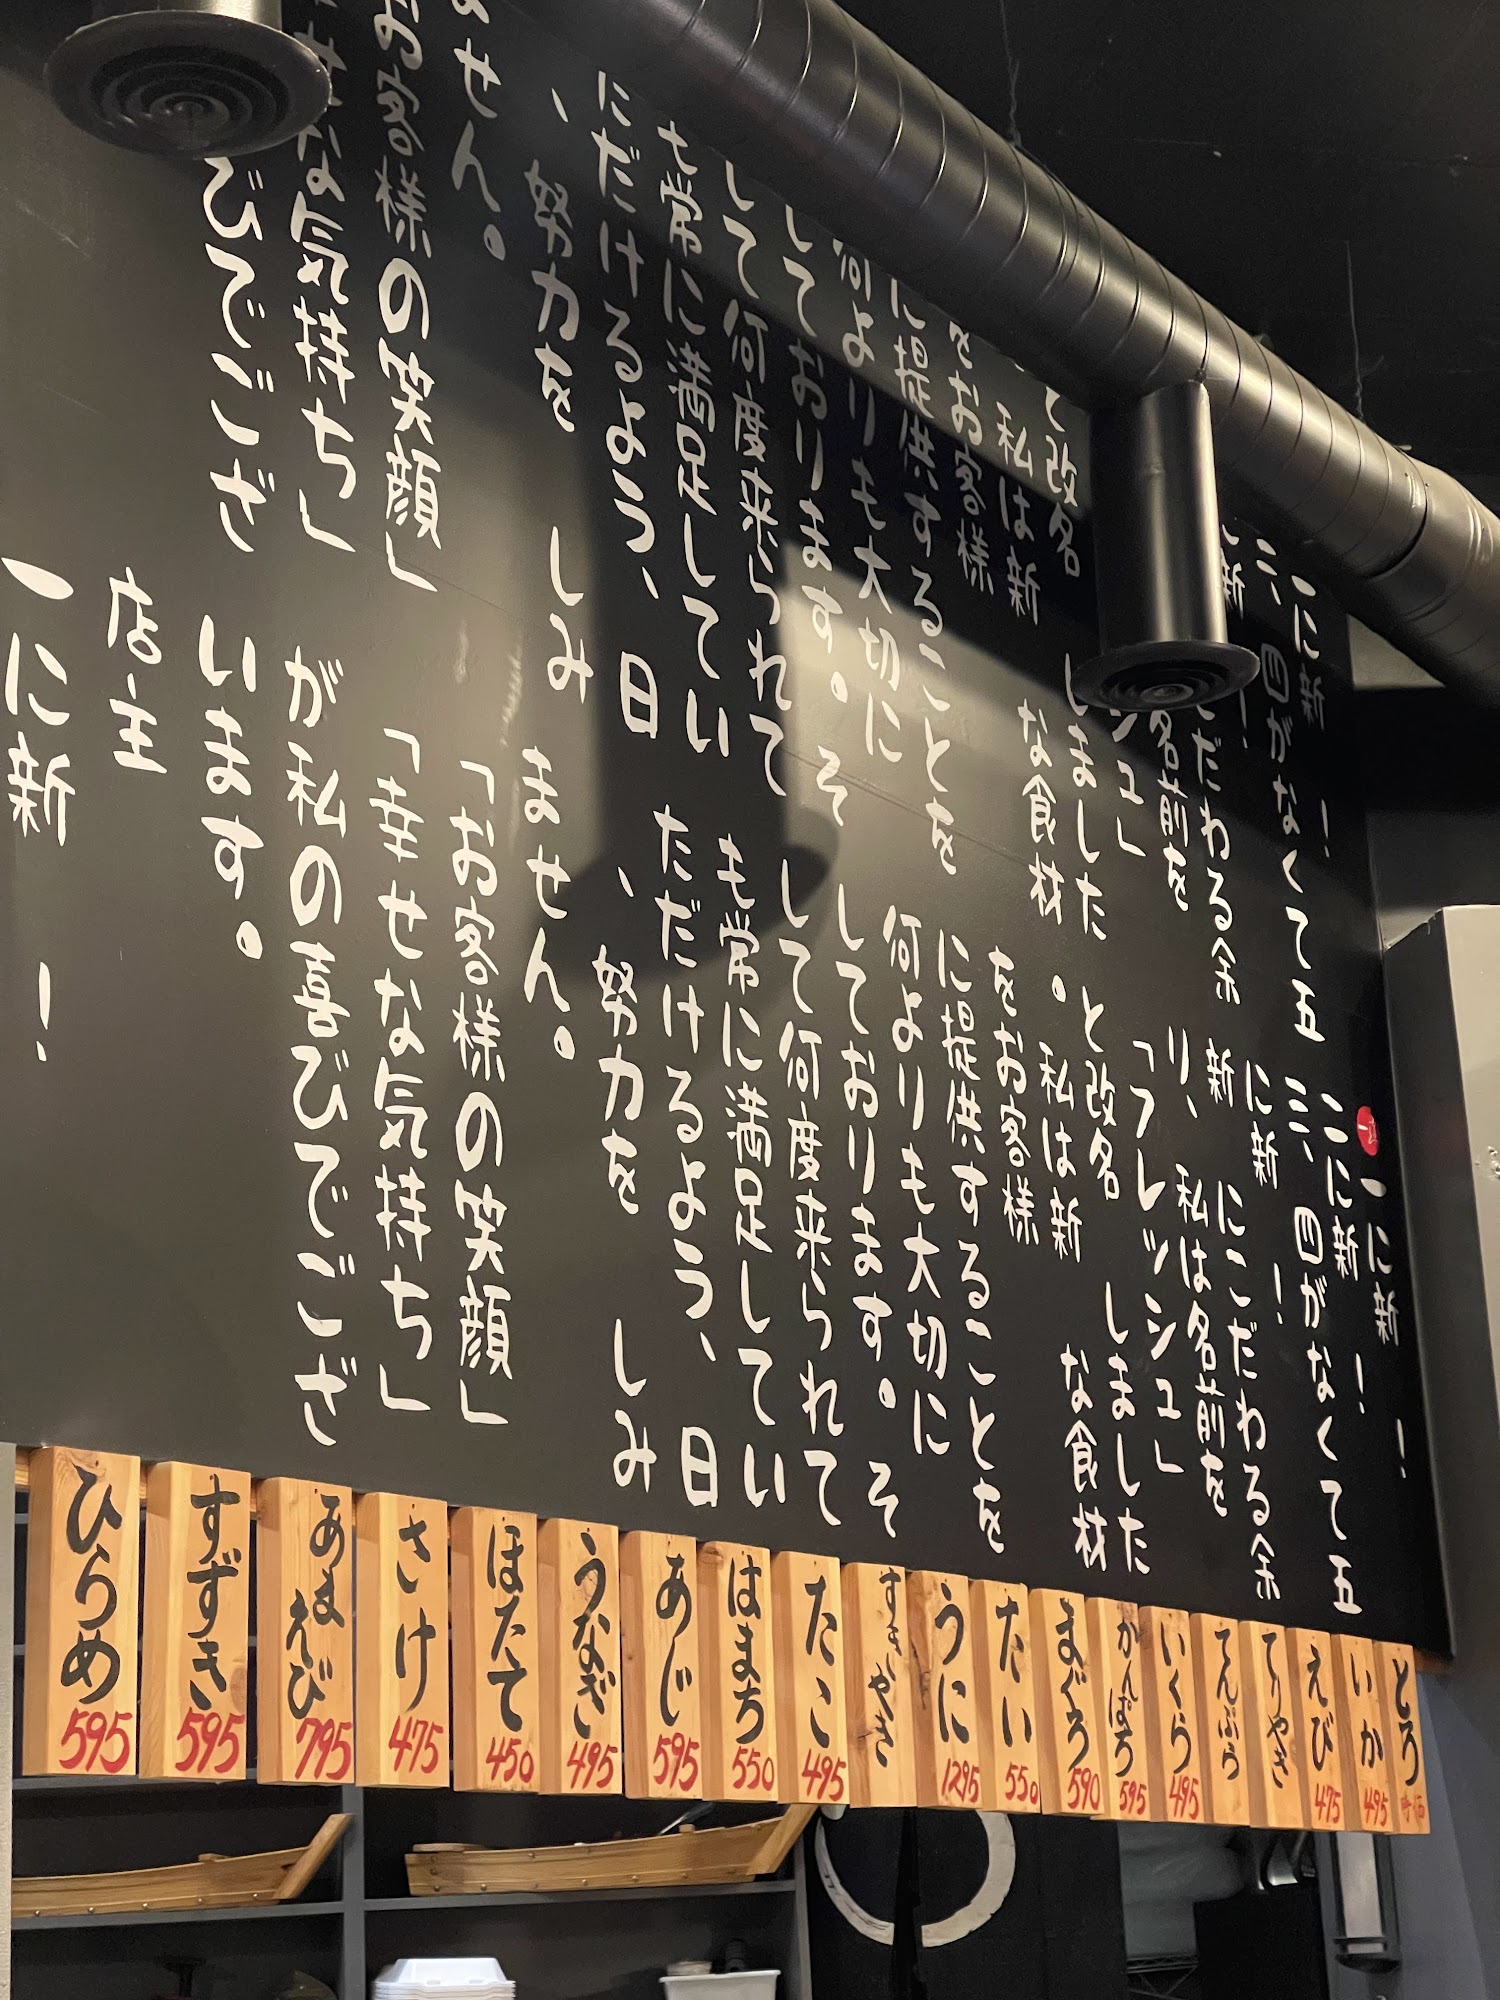 一に新　！
、四がなくて五
新　！
こだわる余
名前を
シュ」
と改名しました
私は新　な食材
をお客様
に提供することを
何よりも大切に
しております。そ
して何度来られて
も常に満足してい
ただけるよう、日
、努力を　しみ
ません。
お客様の笑顔」
せな気持ち」
びでござ
います。
店主
一に新　！
一に新　！
二に新　！
三、四がなくて五
に新　！
にこだわる余
り、私は名前を
「フレッシュ」
と改名しました
。私は新　な食材
をお客様
に提供することを
何よりも大切に
しております。そ
して何度来られて
も常に満足してい
ただけるよう、日
、努力を　しみ
ません。
「お客様の笑顔」
「幸せな気持ち」
が私の喜びでござ
います。
とろ 時価
いか 495
えび 475
てりやき
てんぷら
いくら 495
かんぱち 595
まぐろ 590
たい 550
うに 1295
すきやき
たこ 495
はまち 550
あじ 595
うなぎ 495
ほたて 450
さけ 475
あまえび 795
すずき 595
ひらめ 595